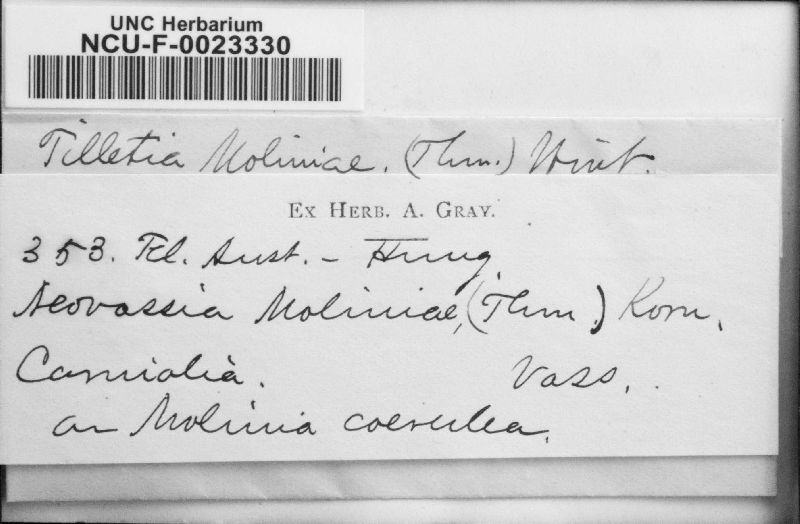 UNC Herbarium
NCU-F-0023330
Tilletia Moliniae. (Thm.) Wint.
Ex Herb. A. Gray.
353. Fl. Aust. - Hung.
Neovossia Moliniae, (Thm.) Korn.
Carniolia. Voss.
on Molinia coerulea.